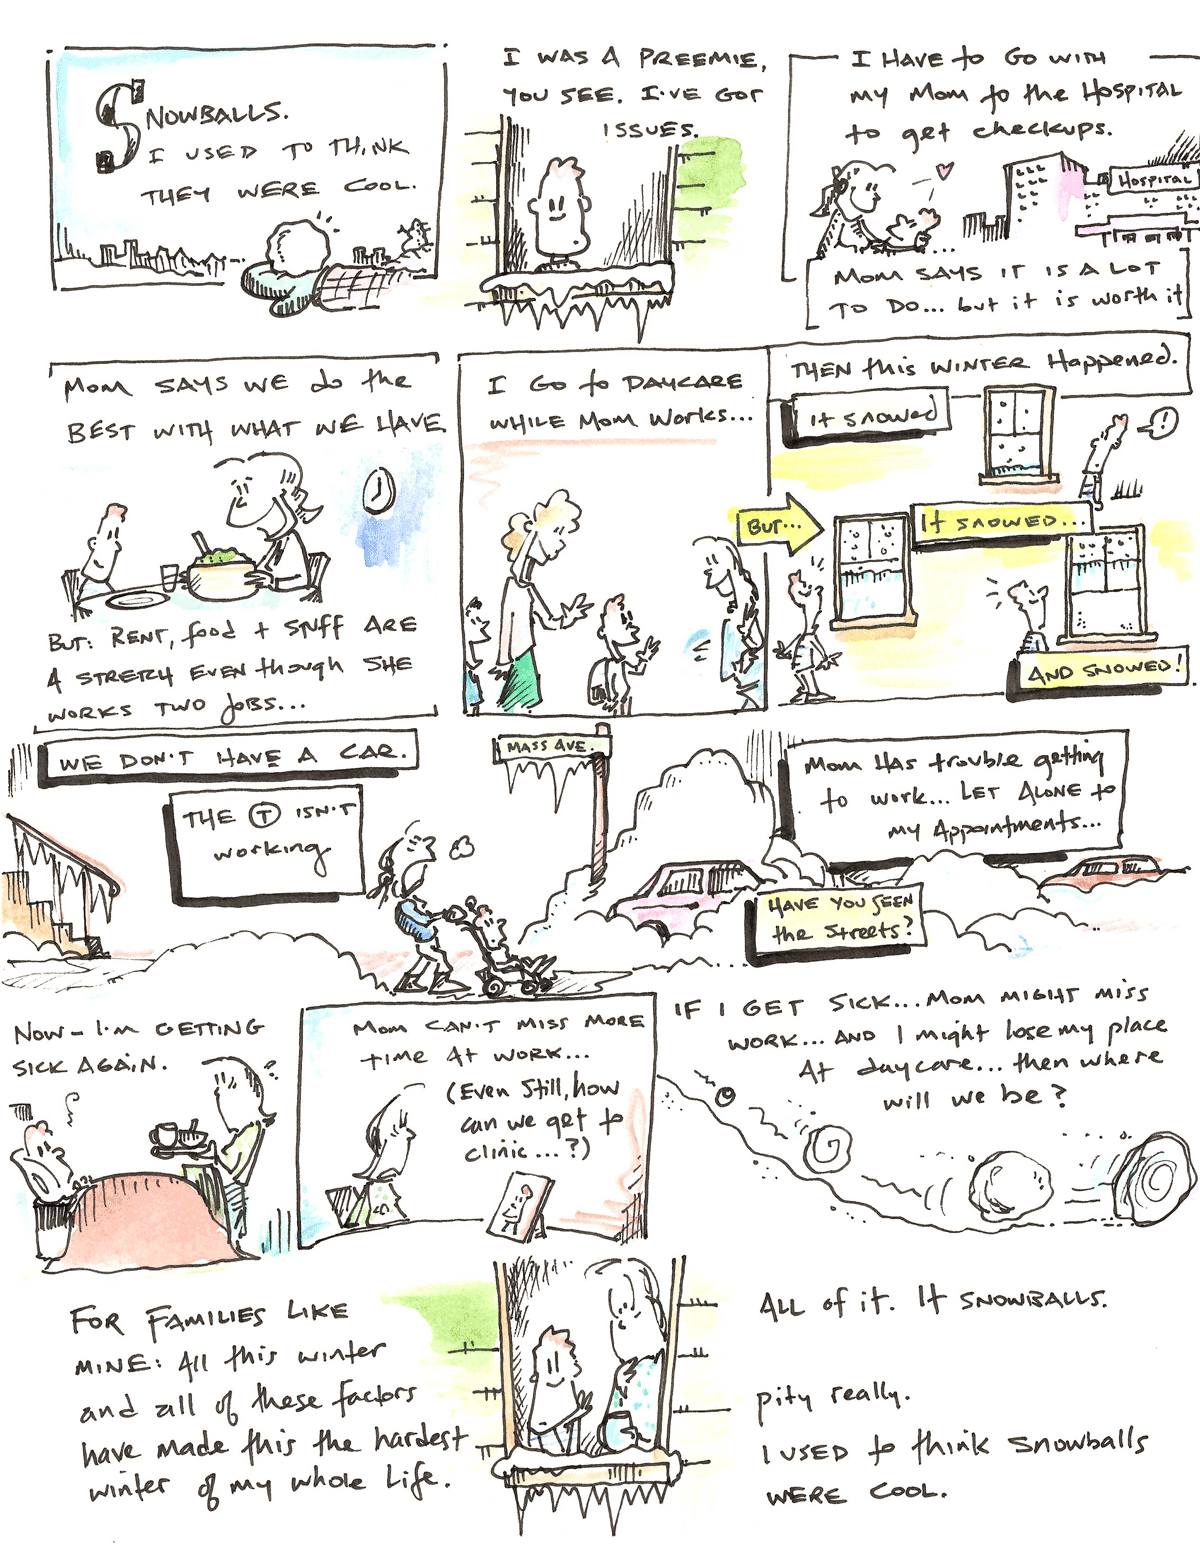 SNOWBALLS.
I USED TO THINK
THEY WERE COOL.
I WAS A PREEMIE,
YOU SEE. I'VE GOT
ISSUES.
I HAVE to Go WITH
my Mom to the HOSPITAL
to get checkups.
HOSPITAL
MOM SAYS IT IS A LOT
TO DO... but it is worth it
Mom SAYS WE do the
BEST WITH WHAT WE HAVE.
BUT: RENT, food + STUFF ARE
A STRETCH EVEN though SHE
WORKS TWO JOBS...
I GO to DAYCARE
WHILE MOM WORKS...
BUT...
THEN this WINTER Happened.
It SNOWED
!
It SNOWED...
AND SNOWED!
WE DON'T HAVE A CAR.
THE T ISN'T
working
MASS AVE.
Mom HAS trouble getting
to work... LET ALONE to
my Appointments...
HAVE YOU SEEN
the Streets?
NOW - I'M GETTING
SICK AGAIN.
Mom CAN'T MISS MORE
TIME At WORK...
(Even Still, how
can we get to
clinic...?)
IF I GET SICK... MOM MIGHT MISS
WORK... AND I might lose my place
At daycare... then where
will we be?
FOR FAMILIES LIKE
MINE: All this winter
and all of these factors
have made this the hardest
winter of my whole life.
ALL of it. It SNOWBALLS.
pity really.
I USED to think Snowballs
WERE COOL.